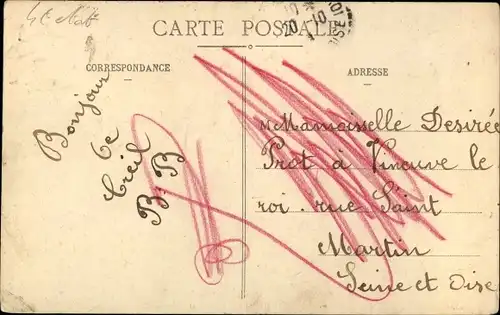 CARTE POSTALE
CORRESPONDANCE
ADRESSE
Bonjour
de
Creil
B. B
Mamoiselle Desirée
Prot à Vineuve le
roi. rue Saint
Martin
Seine et Oise